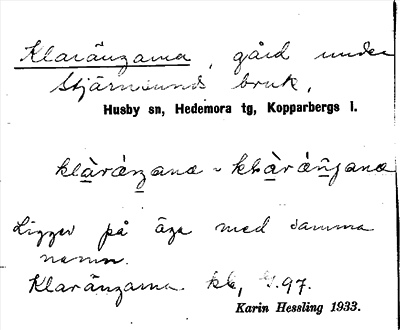 Klarängarna, gård under
Stjärnsunds bruk,
Husby sn, Hedemora tg, Kopparbergs l.
Ligger på äga med samma
namn.
Klarängarna kb, 97.
Karin Hessling 1933.